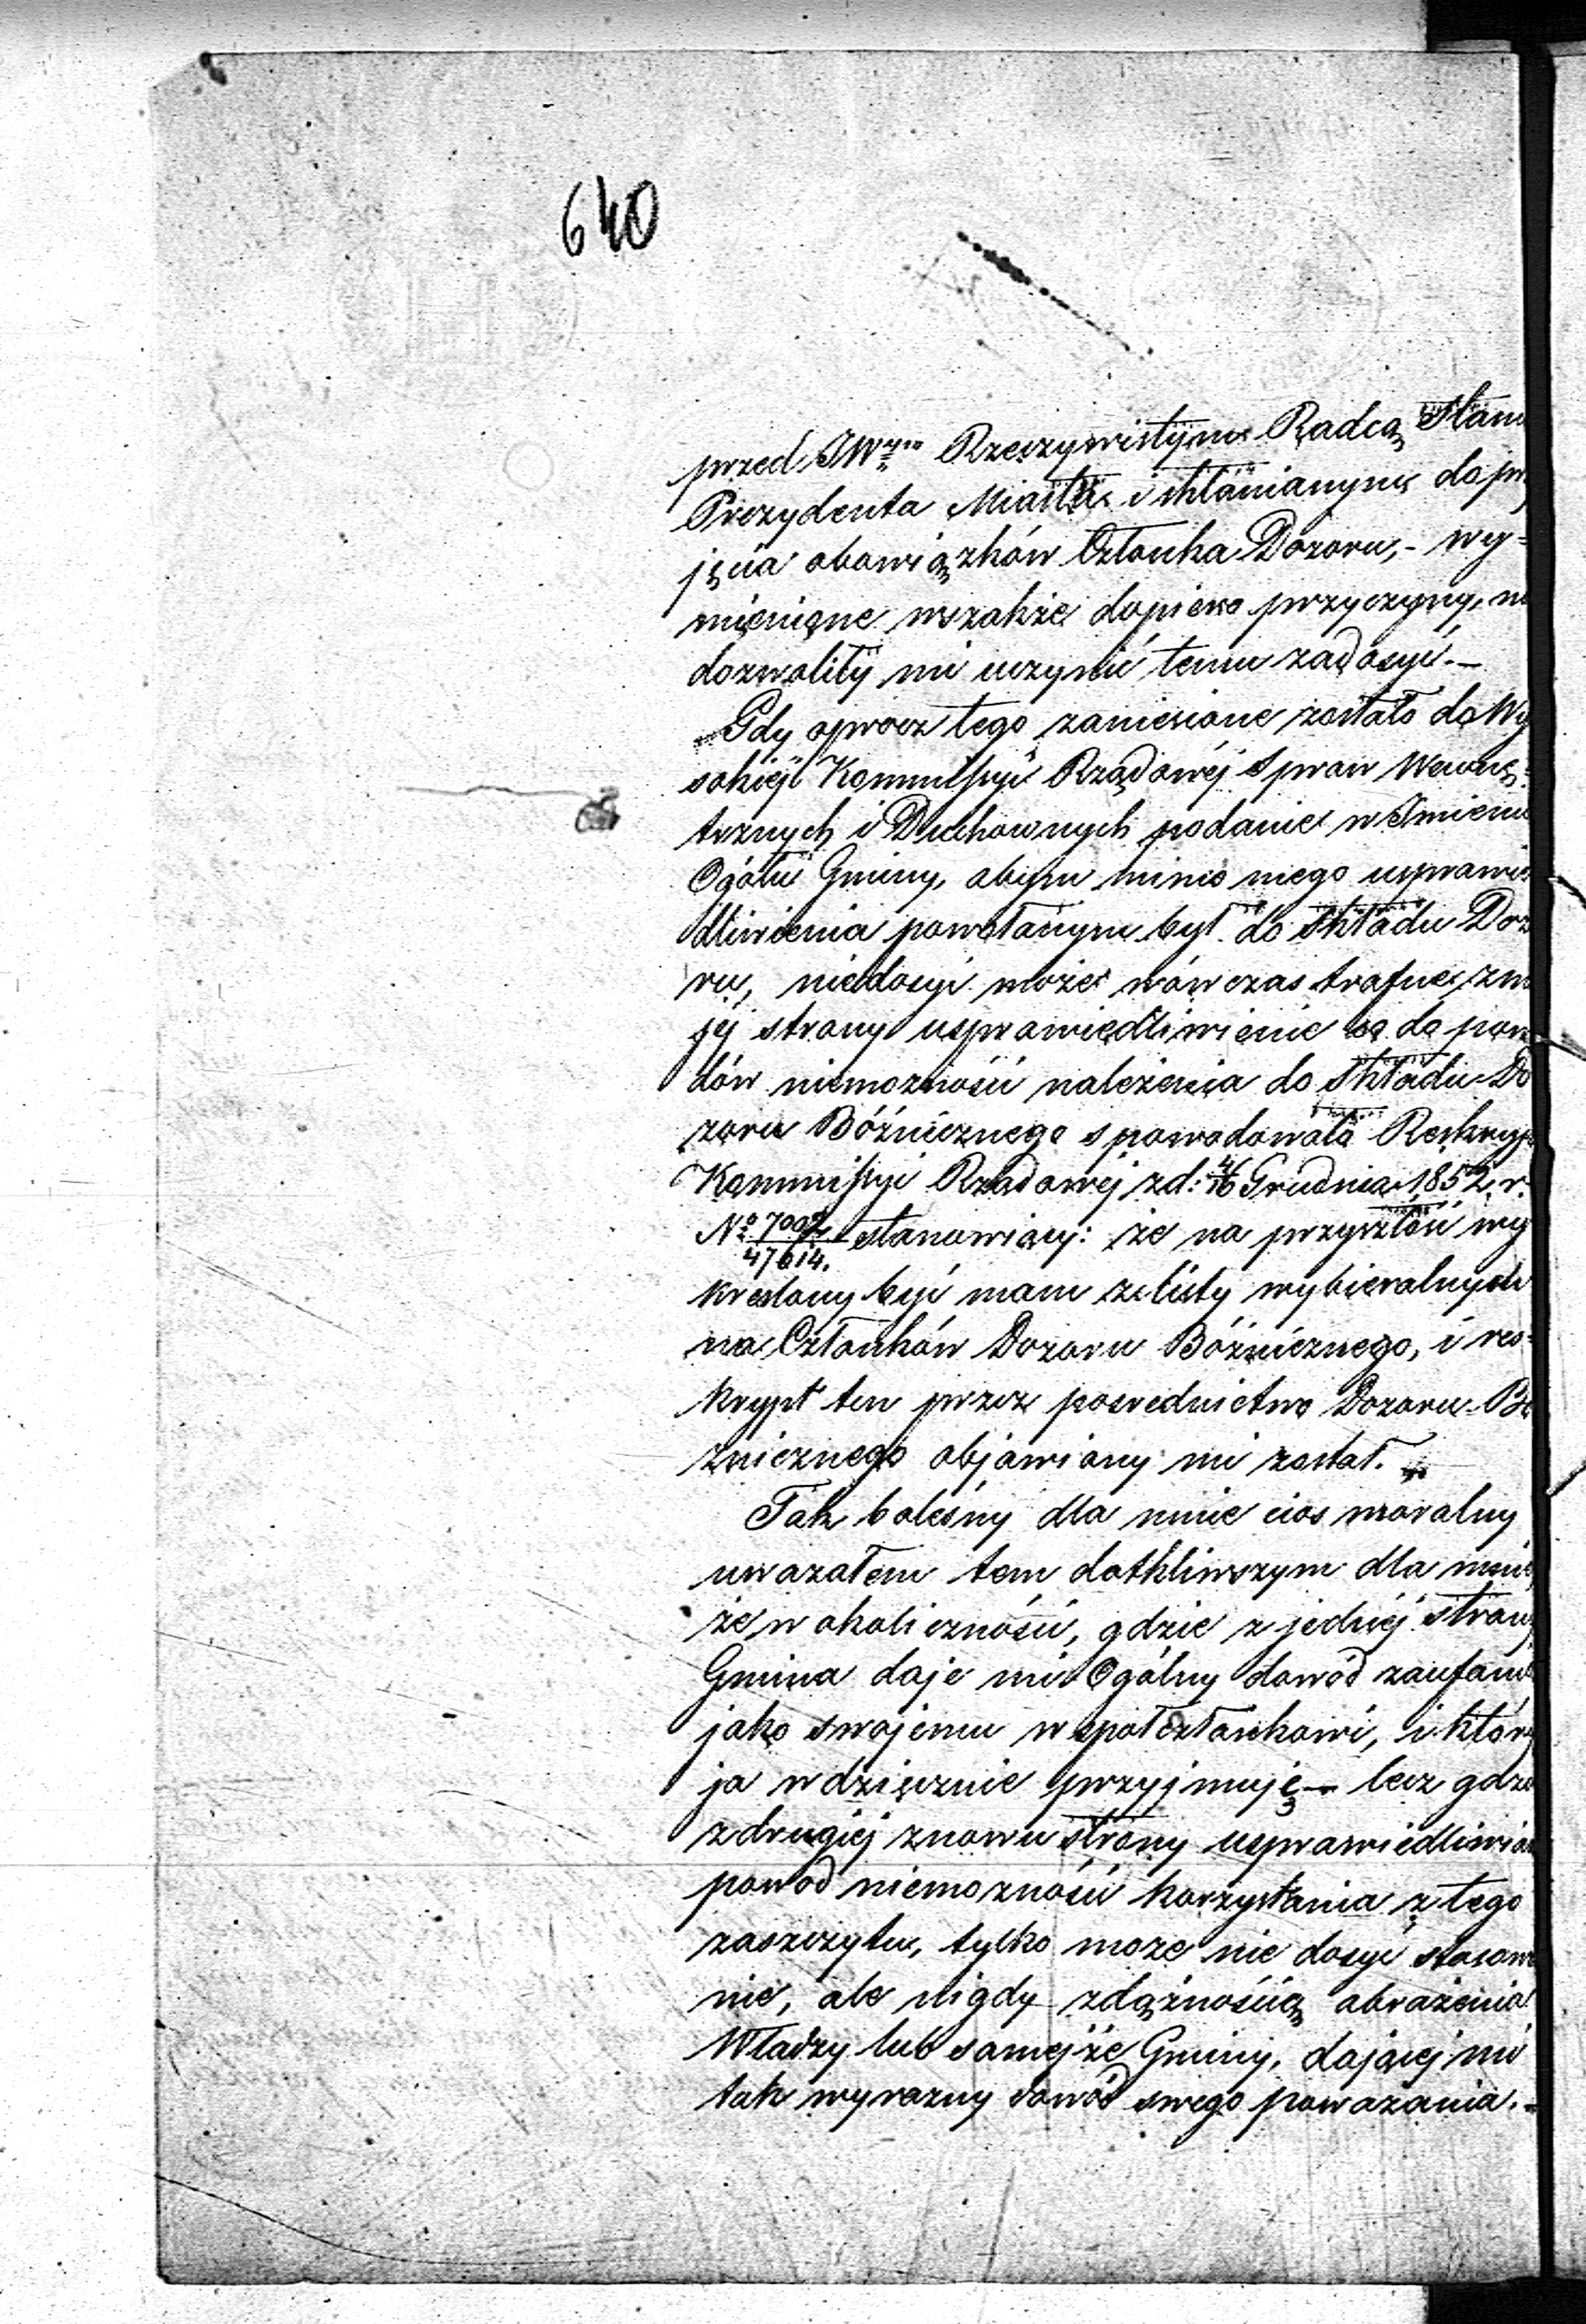 640
przed JWym Rzeczywistym Radcą Stanu
Prezydenta Miasta i skłanianym do prz
jęcia obowiązków Członka Dozoru,- wy=
mienione wszakże dopiero przyczyny, ni
dozwoliły mi uczynić temu zadosyć.-
Gdy oprocz tego zaniesione zostało do Wy
sokiéj Kommissyi Rządowéj Spraw Wewnę=
trznych i Duchownych podanie w Imieniu
Ogółu Gminy, abym mimo mego usprawie
dliwienia powołanym był do składu Dozo
ru, niedosyć może wówczas trafne z mo
jéj strony usprawiedliwienie co do powo
dów niemożności należenia do składu Do
zoru Bóźnicznego spowodowało Reskrypt
Kommissyi Rządowéj z d: 4/16 Grudnia 1852 r.
№ 7002/47614. stanowiący: że na przyszłość wy
kreślony być mam z listy wybieralnych
na Członków Dozoru Bóźnicznego, i res=
krypt ten przez posrednictwo Dozoru Bó
źnicznego objawiony mi został.
Tak bolésny dla mnie cios moralny
uważałem tem dotkliwszym dla mnie,
że w okoliczności, gdzie z jednéj strony
Gmina daje mi Ogólny dowód zaufania
jako swojemu współczłonkowi, i który
ja wdzięcznie przyjmuję - lecz gdzie
z drugiéj znowu strony usprawiedliwion
powód niemożności korzystania z tego
zaszczytu, tylko może nie dosyć stosow
nie, ale nigdy zdążnością obrażenia
Władzy lub samejże Gminy, dającéj mi
tak wyraźny dowód swego poważania.-